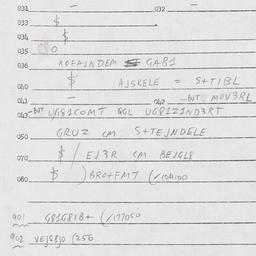 031 — 032 —
033 $
034 $
035 0
036 KOFAJNDEM GA81
$ AJSKELE = S+TIBL
040
041 — 042 —BUT MOV3RL
043 —BUT UG81COMT QGL UG81Z1ND3RT
050 GRUZ CM S+TEJNDELE
070 $ / EJ3R CM BEJGL8
080 $ ) BRO+FMT (/104100
901 G81G81B+ (/177050
902 VEJSBJO (256